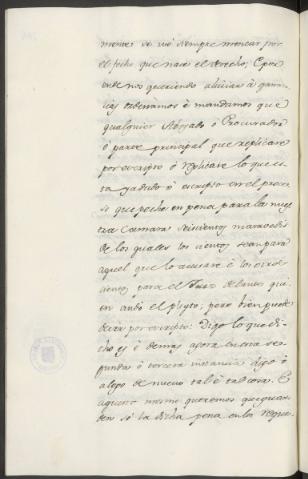 menos se vee siempre mencar por
el fecho que nace el derecho; E por
ende nos queriendo aliviar
ordenamos è mandamos que
qualquier Abogado ò Procurador
ò parte principal que replicare
por escripto ò replicare lo que es
ta ya dicho ò escripto en el proce
so que peche en pena para la nues
tra Camara seiscientos maravedis
de los quales los cientos sean para
aquel que lo acusare è los otros
cientos para el Juez delante qui
en ande el pleyto; pero bien puede
decir por escripto: Digo lo que di
cho es è demas agora en esta res
puesta ò tercera instancia digo ò
alego de nuevo tal è tal cosa. E
aquesto mismo queremos que guar
den só la dicha pena en los reque